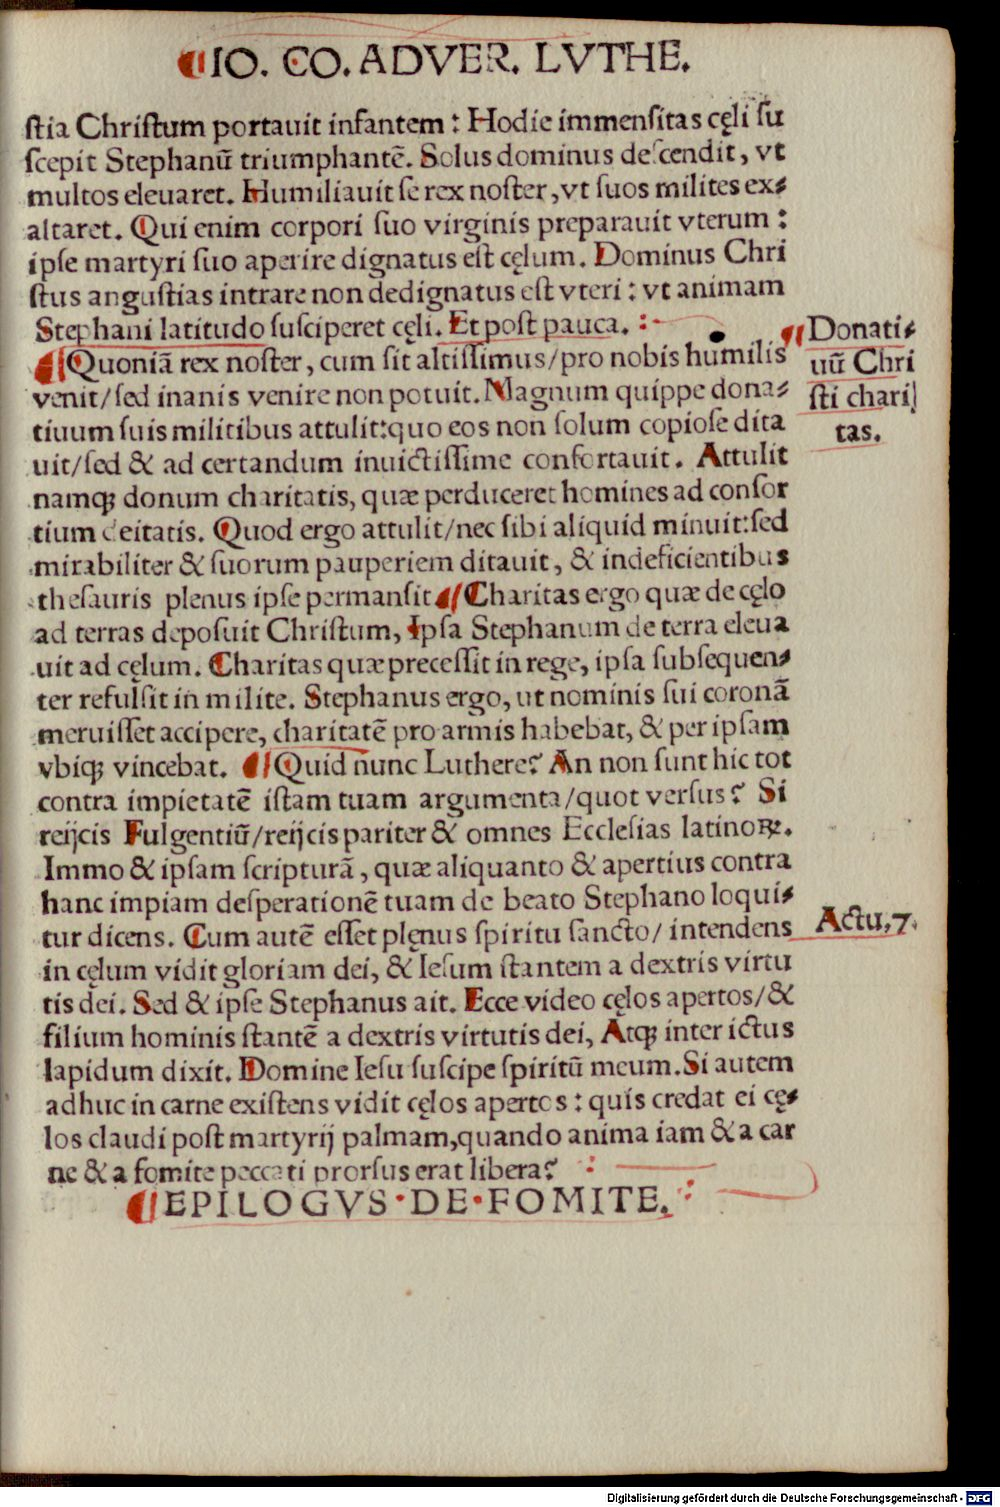 IO. CO. ADVER. LVTHE.
ſtia Chriſtum portauit infantem : Hodie immenſitas cęli ſu
ſcepit Stephanū triumphantē. Solus dominus deſcendit, vt
multos eleuaret. Humiliauit ſe rex noſter, vt ſuos milites ex⸗
altaret. Qui enim corpori ſuo virginis preparauit vterum :
ipſe martyri ſuo aperire dignatus eſt cęlum. Dominus Chri
ſtus anguſtias intrare non dedignatus eſt vteri : vt animam
Stephani latitudo ſuſciperet cęli. Et poſt pauca.
Quoniā rex noſter, cum ſit altiſſimus/pro nobis humilis
Donati⸗
uū Chri
ſti chari
tas.
venit/ſed inanis venire non potuit. Magnum quippe dona⸗
tiuum ſuis militibus attulit:quo eos non ſolum copioſe dita
uit/ſed & ad certandum inuictiſſime confortauit. Attulit
namqꝫ donum charitatis, quæ perduceret homines ad conſor
tium deitatis. Quod ergo attulit/nec ſibi aliquid minuit:ſed
mirabiliter & ſuorum pauperiem ditauit, & indeficientibus
theſauris plenus ipſe permanſit Charitas ergo quæ de cęlo
ad terras depoſuit Chriſtum, Ipſa Stephanum de terra eleua
uit ad cęlum. Charitas quæ preceſſit in rege, ipſa ſubſequen⸗
ter refulſit in milite. Stephanus ergo, ut nominis ſui coronā
meruiſſet accipere, charitatē pro armis habebat, & per ipſam
vbiqꝫ vincebat. Quid nunc Luthere? An non ſunt hic tot
contra impietatē iſtam tuam argumenta/quot verſus? Si
reijcis Fulgentiū/reijcis pariter & omnes Eccleſias latinoꝝ.
Immo & ipſam ſcripturā, quæ aliquanto & apertius contra
hanc impiam deſperationē tuam de beato Stephano loqui⸗
tur dicens. Cum autē eſſet plęnus ſpiritu ſancto/ intendens
Actu, 7.
in cęlum vidit gloriam dei, & Ieſum ſtantem a dextris virtu
tis dei. Sed & ipſe Stephanus ait. Ecce video cęlos apertos/&
filium hominis ſtantē a dextris virtutis dei, Atqꝫ inter ictus
lapidum dixit. Domine Ieſu ſuſcipe ſpiritū meum. Si autem
adhuc in carne exiſtens vidit cęlos apertos : quis credat ei cę⸗
los claudi poſt martyrij palmam, quando anima iam & a car
ne & a fomite peccati prorſus erat libera?
EPILOGVS·DE·FOMITE.
Digitalisierung gefördert durch die Deutsche Forschungsgemeinschaft - DFG